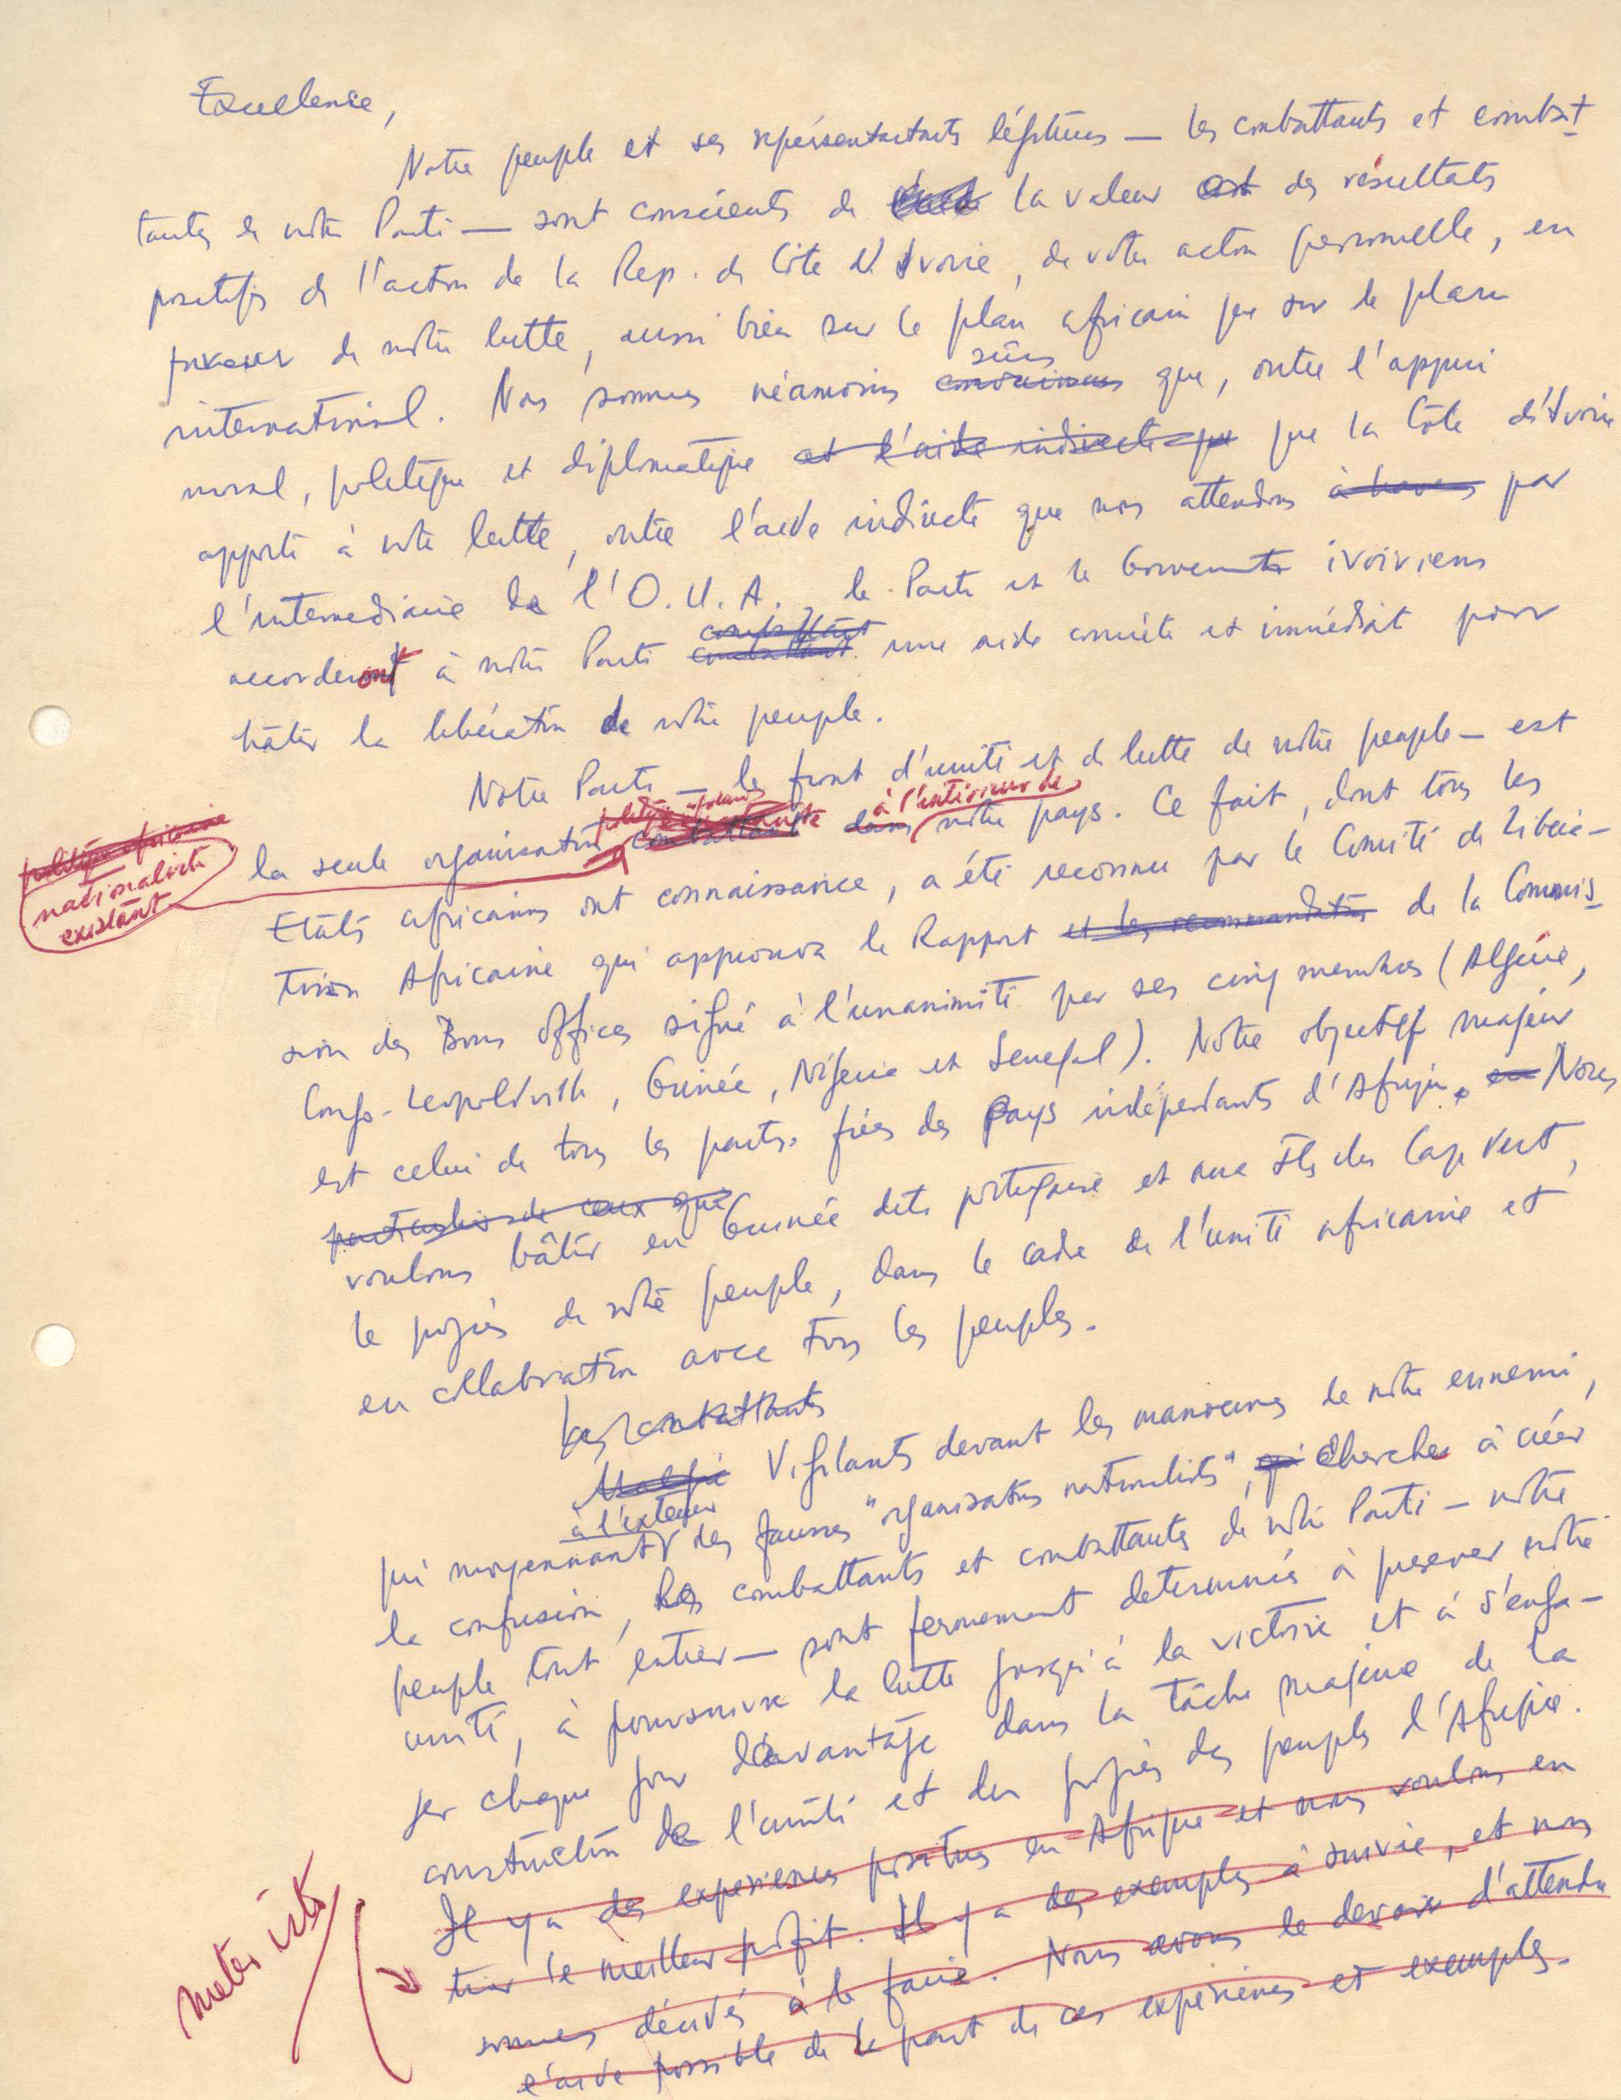 Excellence,
Notre peuple et ses représentants légitimes — les combattants et combat-
tantes de notre Parti — sont conscients de la valeur est des résultats
positifs de l'action de la Rep. de Côte d'Ivoire, de votre action personnelle, en
faveur de notre lutte, aussi bien sur le plan africain que sur le plan
sûrs
international. Nous sommes néamoins convaincus que, outre l'appui
moral, politique et diplomatique et l'aide indirecte que que la Côte d'Ivoire
apporte à notre lutte, outre l'aide indirecte que nous attendons à travers par
l'intermediaire de l'O.U.A., le Parti et le Gouvernemt ivoiriens
combattant
accorderont à notre Parti combattant une aide concrète et immédiat pour
hâter la libération de notre peuple.
Notre Parti — le front d'unité et de lutte de notre peuple — est
à l'intérieur de
la seule organisation combattante dans notre pays. Ce fait, dont tous les
politique africaine
nationaliste
existant
Etats africains ont connaissance, a été reconnu par le Comité de Libéra-
tion Africaine qui approuva le Rapport et les recommandations de la Commis-
sion des Bons Offices signé à l'unanimité par ses cinq membres (Algérie,
Congo-Leopoldville, Guinée, Nigeria et Senegal). Notre objectif majeur
est celui de tous les partis frères des Pays indépendants d'Afrique. en Nous
particulier de ceux que
voulons bâtir en Guinée dite portugaise et aux Iles du Cap Vert,
le progrès de notre peuple, dans le cadre de l'unité africaine et
en collaboration avec tous les peuples.
Les combattants
Malgré Vigilants devant les manoeuvres de notre ennemi,
à l'exterieur
qui moyennant des fausses "organisations nationalistes", qui cherche à créer
la confusion, les combattants et combattantes de notre Parti — notre
peuple tout entier — sont fermement determinés à preserver notre
unité, à poursuivre la lutte jusqu'à la victoire et à s'enga-
ger chaque jour davantage dans la tâche majeure de la
construction de l'unité et du progrès des peuples d'Afrique.
Il y a des experiences positives en Afrique et nous voulons en
tirer le meilleur profit. Il y a des exemples à suivre, et nous
sommes décidés à le faire. Nous avons le devoir d'attendre
l'aide possible de la part de ces expériences et exemples.
meter isto